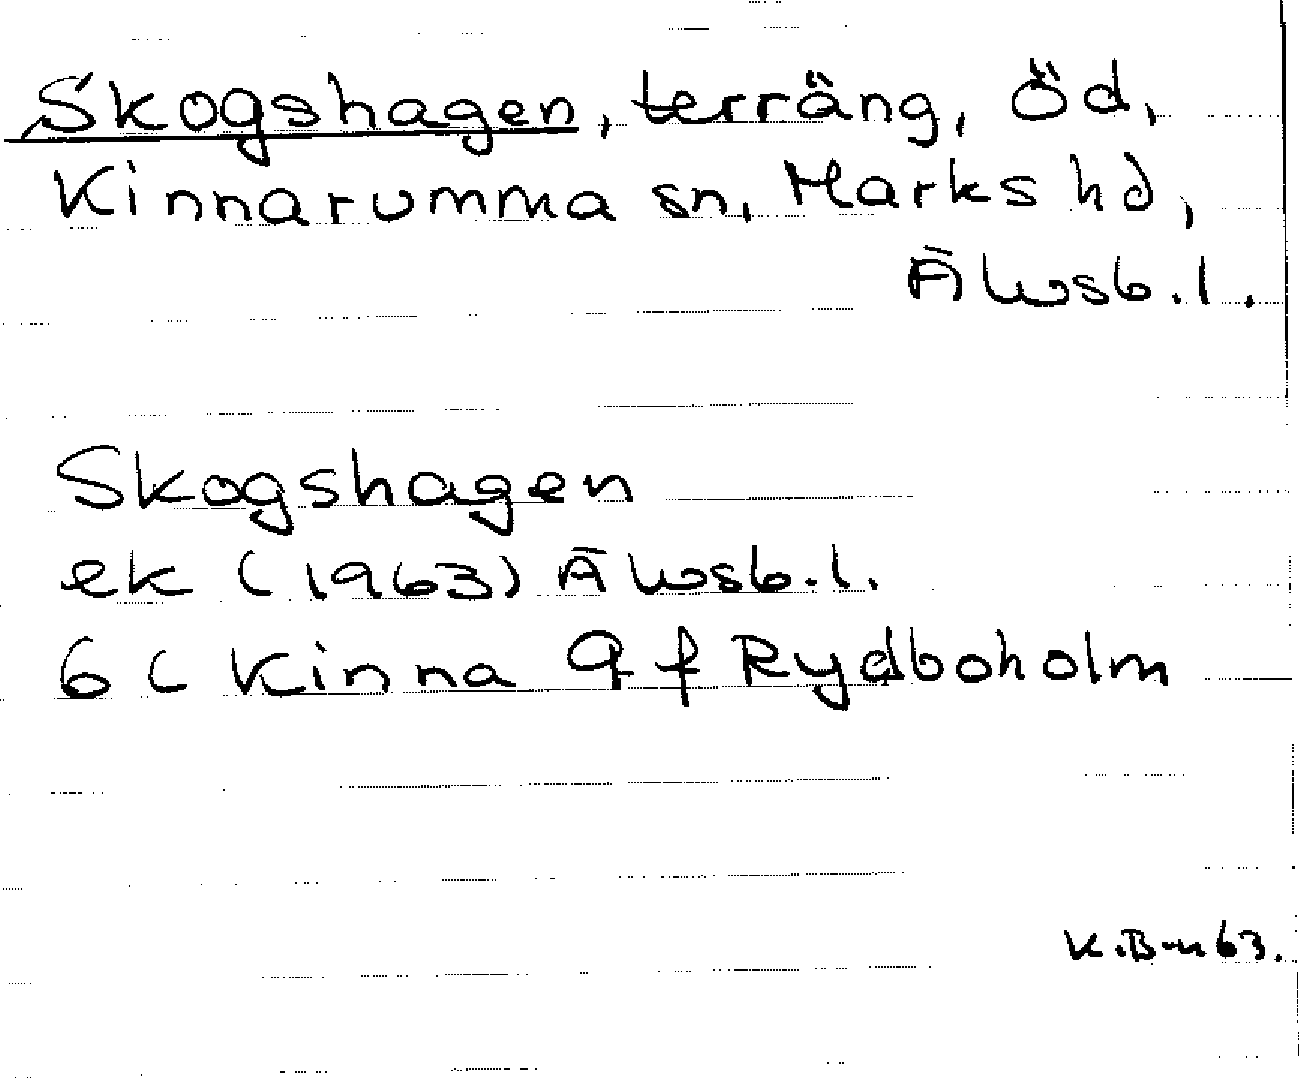 Skogshagen, terräng, Öd,
Kinnarumma sn, Marks hd,
Älvsb. l.
Skogshagen
ek (1963) Älvsb. l.
6 C Kinna 9 f Rydboholm
K.B-n 63.